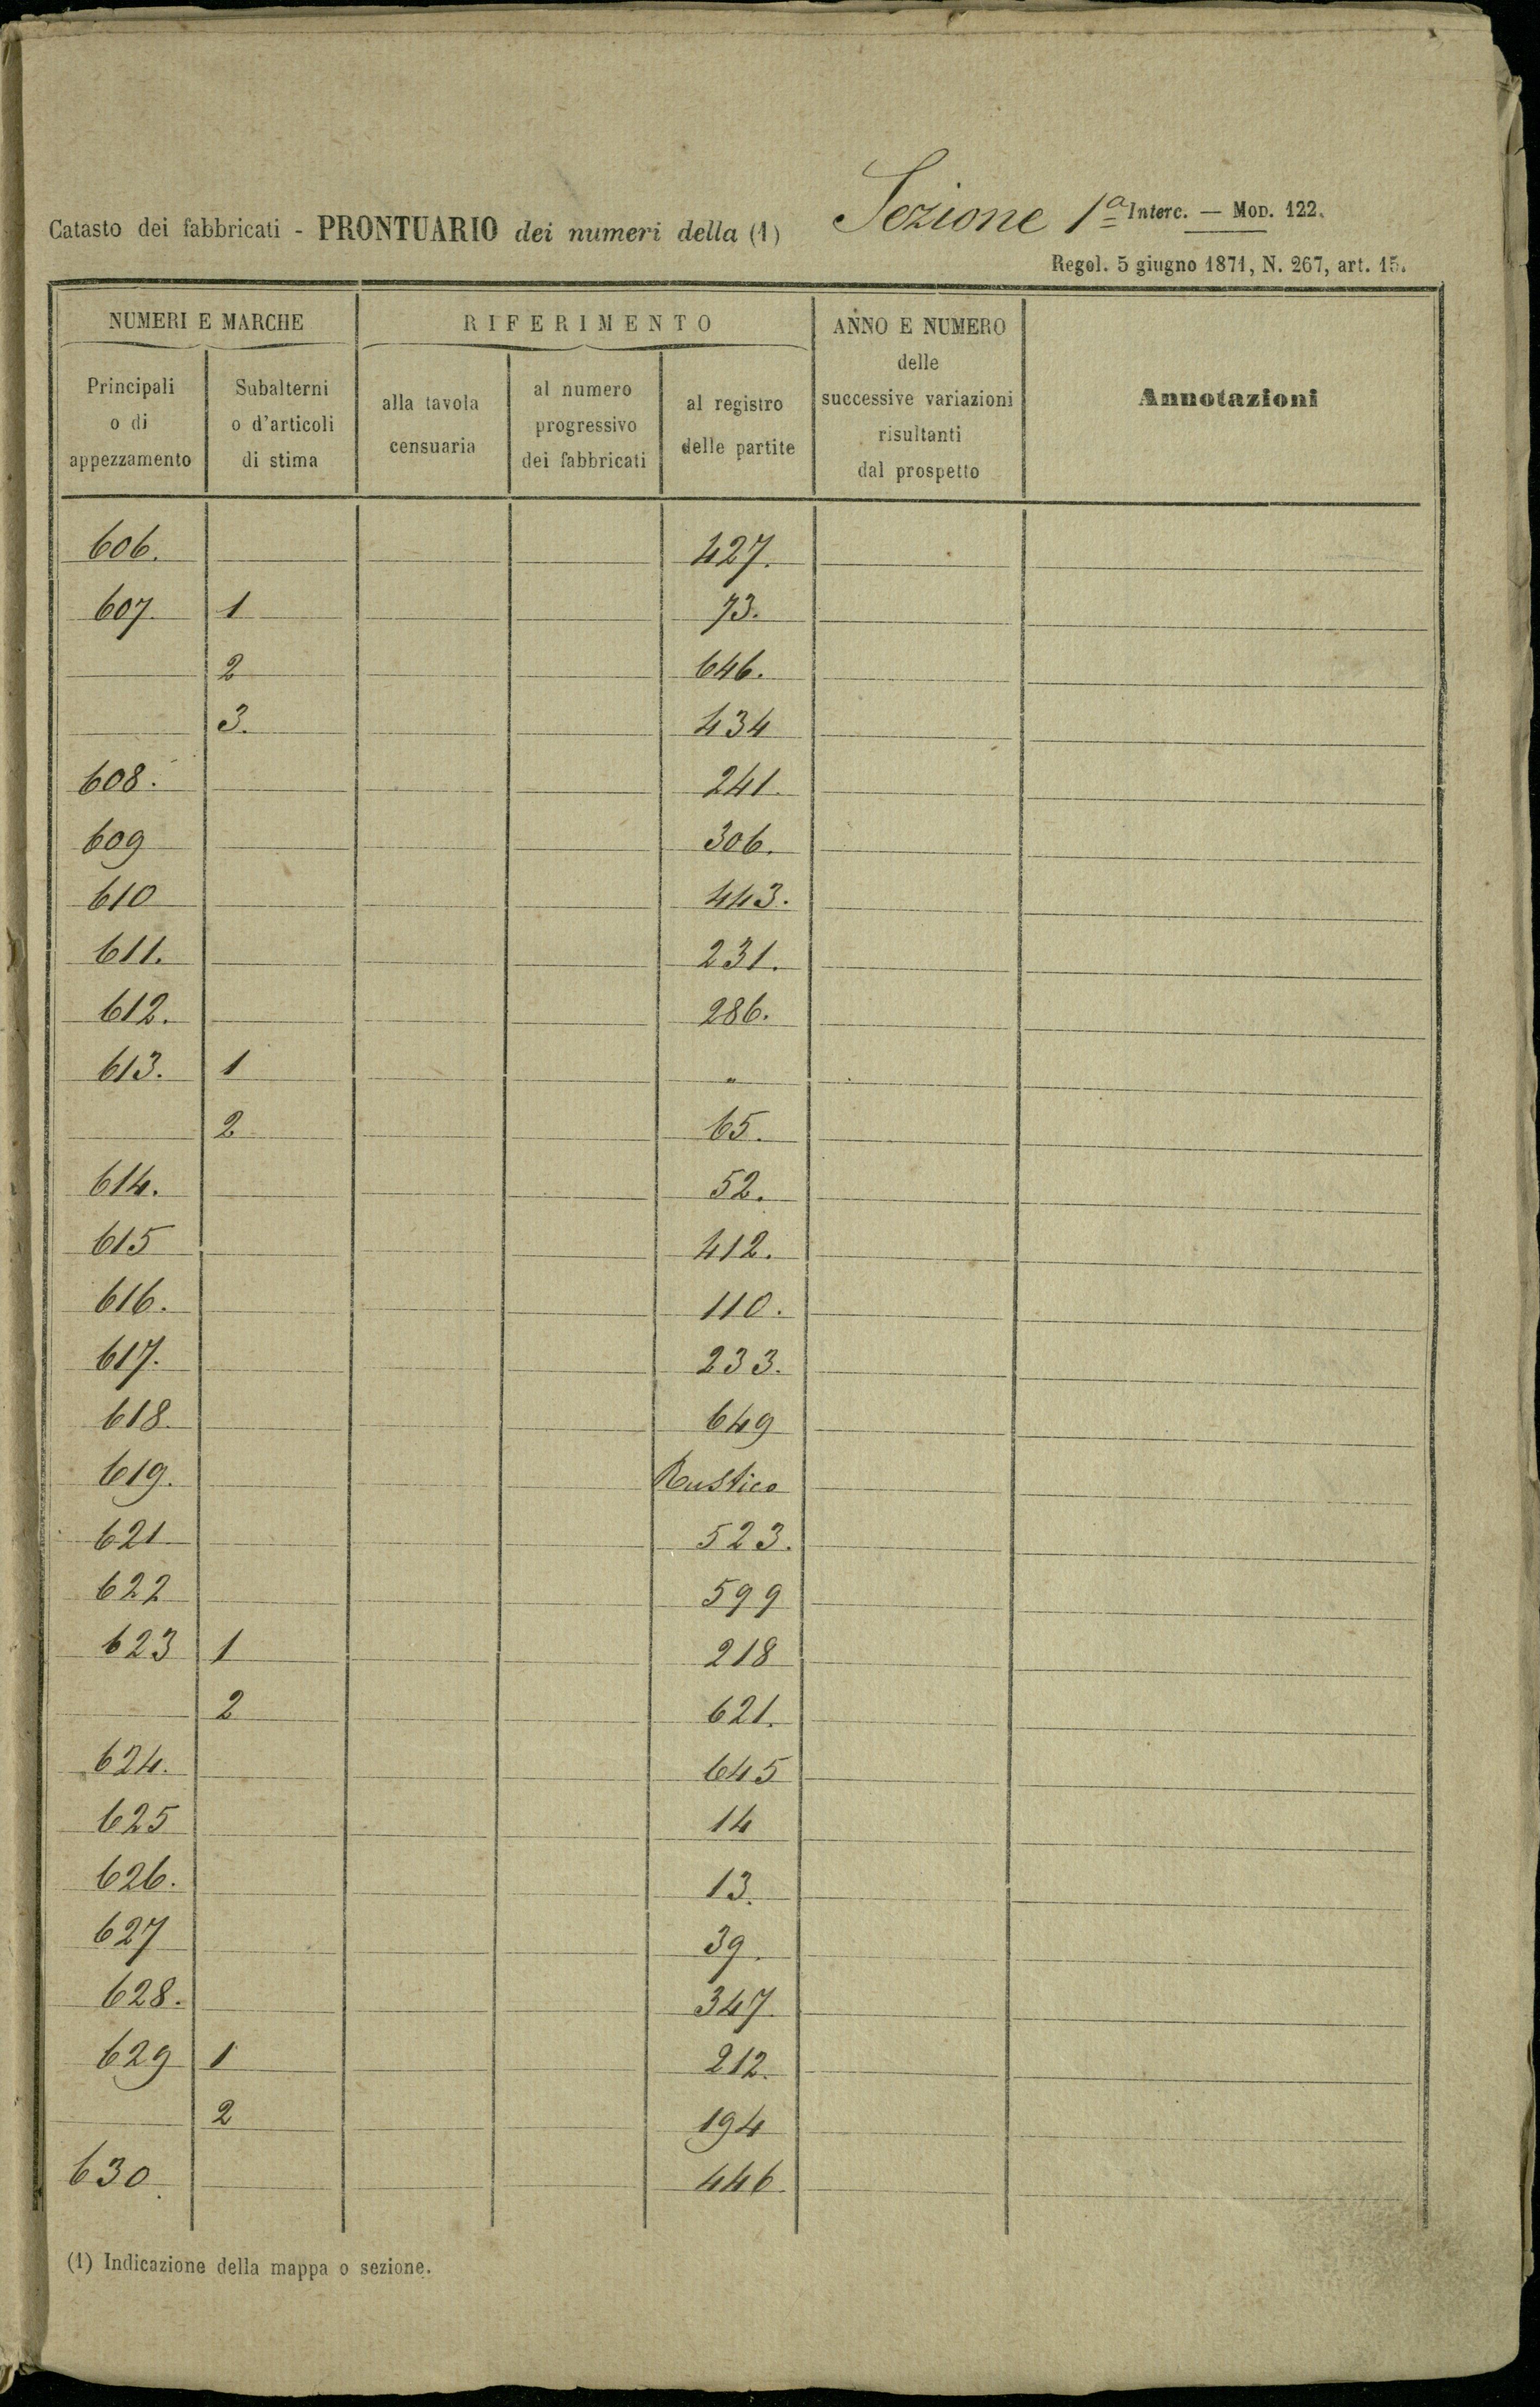 Catasto dei fabbricati - PRONTUARIO dei numeri della (1) Sezione 1ª Interc. — MOD. 122.
Regol. 5 giugno 1871, N. 267, art. 15.
NUMERI E MARCHE RIFERIMENTO ANNO E NUMERO delle successive variazioni risultanti dal prospetto Annotazioni
Principali o di appezzamento Subalterni o d'articoli di stima alla tavola censuaria al numero progressivo dei fabbricati al registro delle partite
606. 427.
607. 1 73.
2 646.
3. 434
608. 241.
609 306.
610 443.
611. 231.
612. 286.
613. 1 "
2 65.
614. 52.
615 412.
616. 110.
617. 233.
618. 649
619. Rustico
621 523.
622 599
623 1 218
2 621.
624. 645
625 14
626. 13.
627 39.
628. 347.
629 1 212.
2 194
630. 446.
(1) Indicazione della mappa o sezione.